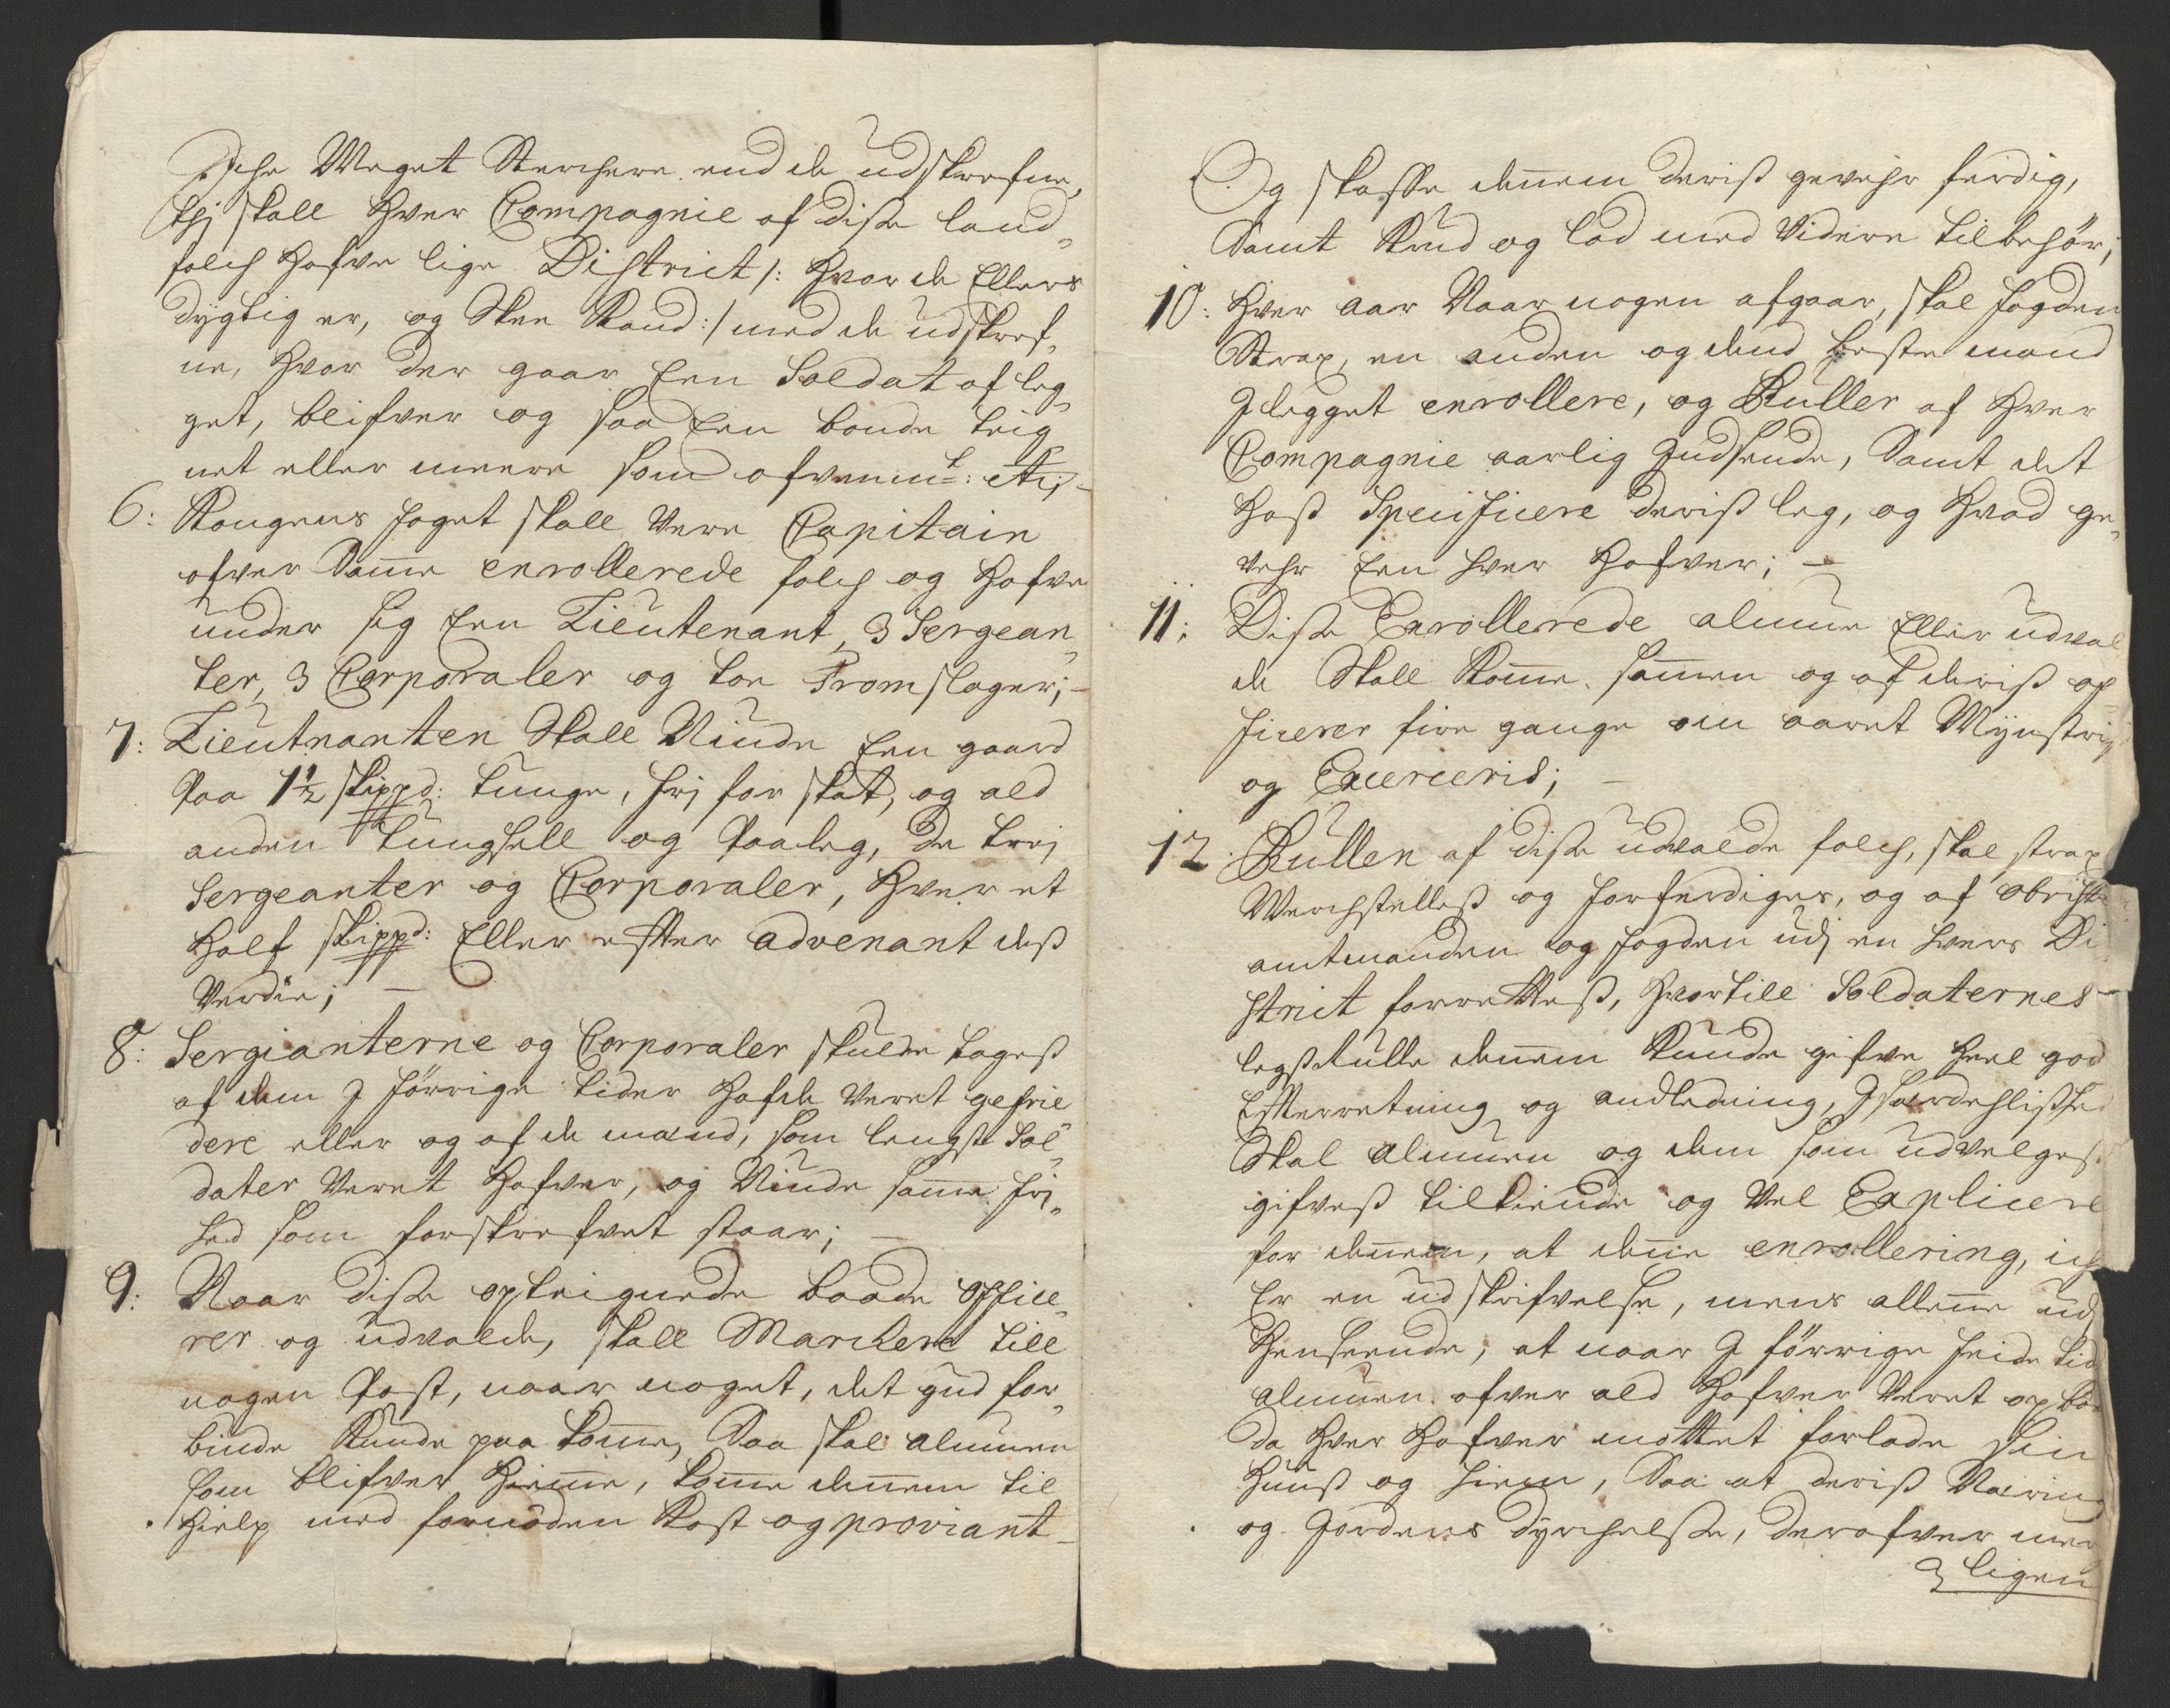 Iche Meget Sterchere end de udskrefne,
thj skall hver Compagnie af diße land„
folch hafve lige District /: hvor de Ellers
dygtig er, og Skee kand :/ med de udskref„
ne, hvor der gaar Een Soldat af leg„
get, blifver og saa Een bonde teig„
net eller meere som ofvenmt:
6: Kongens foget skall Vere Capitain
ofver Samme enrollerede folch og hafve
under sig Een Lieutenant, 3 Sergean„
ter, 3 Corporaler og toe Tromslager;
7: Lieutnanten Skall Niude Een gaard
Paa 1½ skippd: tunge, frj for skat, og ald
anden tungsell og Paaleg, de trej
Sergeanter og Corporaler, hver et
half skippd: Eller efter advenant deß
Verdie;
8: Sergianterne og Corporaler skulde tageß
af dem I förrige tider hafde Veret gefrie
dere eller og af de mænd, som lengst Sol„
dater Veret hafver, og Niude samme frj„
hed som forskrefvet staar;
9: Naar diße opteignede baade Officerer„
rer og udvalde, skall Marchere till
nogen Post, naar noget, det gud for„
binde kunde paa komme, Saa skal almuen
som blifver hiemme, komme dennem til
hielp med fornöden Kost og proviant
Og skaffe dennem deriß gevehr ferdig,
Samt Krud og lod med Videre tilbehör;
10: hver aar Naar nogen afgaar, skal fogden
Strax, en anden og dend beste mand
I legget enrollere, og Ruller af hver
Compagnie aarlig Indsende, Samt det
hoß Specificere deriß leg, og hvad ge„
vehr Een hver hafver;
11: Diße Enrollerede almue Eller udval
de Skall komme sammen og af deriß of
ficerer fire gange om aaret Mynstris
og Excerceris;
12: Rullen af diße udvalde folch, skal strax
Werchstelleß og forferdiges, og af obrist
amtmanden og fogden udj en hvers Di
strict forretteß, hvortill Soldaternes
legßrulle dennem kunde gifve heel god
Efterretning og andledning, I særdehlißhed
Skal almuen og dem som udvelges
gifveß tilkiende og Vel Explicere
for dennem, at denne enrollering, ich
Er en udskrifvelse, mens allene udj
henseende, at naar I förrige feide tid
almuen ofver ald hafver Veret opbod
da hver hafver mottet forlade sin
huuß og hiem, Saa at deriß Næring
og Jordens dyrchelße, derofver mer
ligen